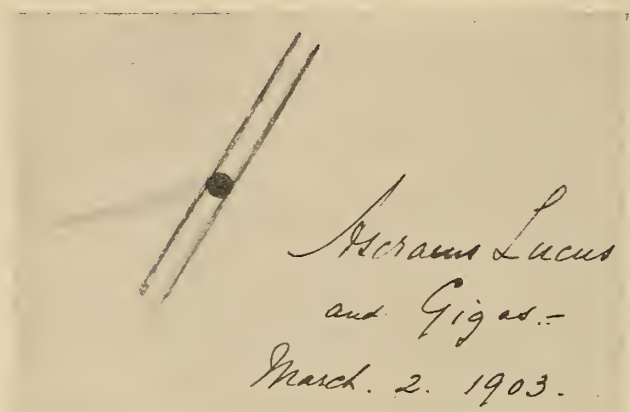 Ascraeus Lucus
and Gigas.-
March. 2. 1903.